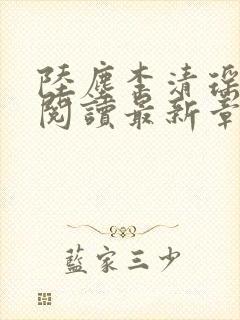 陸塵李清瑤
閱讀最新章
藍家三少